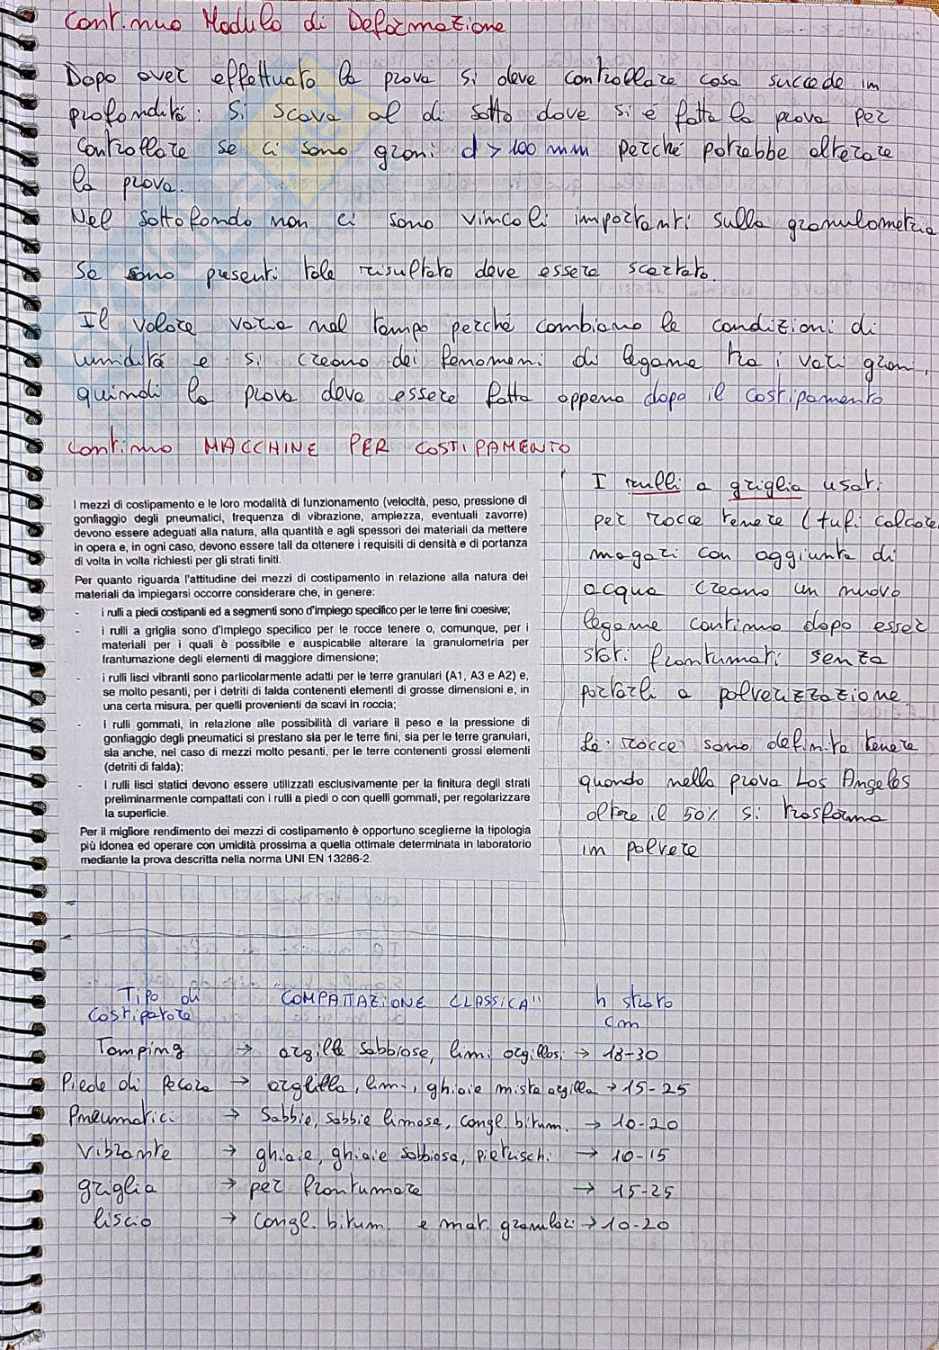 Continuo Modulo di Deformazione
Dopo aver effettuato la prova si deve controllare cosa succede in
profondità: Si scava al di sotto dove si è fatta la prova per
controllare se ci sono grani d > 100 mm perché potrebbe alterare
la prova.
Nel sottofondo non ci sono vincoli importanti sulla granulometria
Se sono presenti tale risultato deve essere scartato.
Il valore varia nel tempo perché cambiano le condizioni di
umidità e si creano dei fenomeni di legame tra i vari grani,
quindi la prova deve essere fatta appena dopo il costipamento
Continuo MACCHINE PER COSTIPAMENTO
I mezzi di costipamento e le loro modalità di funzionamento (velocità, peso, pressione di
gonfiaggio degli pneumatici, frequenza di vibrazione, ampiezza, eventuali zavorre)
devono essere adeguati alla natura, alla quantità e agli spessori dei materiali da mettere
in opera e, in ogni caso, devono essere tali da ottenere i requisiti di densità e di portanza
di volta in volta richiesti per gli strati finiti.
Per quanto riguarda l'attitudine dei mezzi di costipamento in relazione alla natura dei
materiali da impiegarsi occorre considerare che, in genere:
- i rulli a piedi costipanti ed a segmenti sono d'impiego specifico per le terre fini coesive;
- i rulli a griglia sono d'impiego specifico per le rocce tenere o, comunque, per i
materiali per i quali è possibile e auspicabile alterare la granulometria per
frantumazione degli elementi di maggiore dimensione;
- i rulli lisci vibranti sono particolarmente adatti per le terre granulari (A1, A3 e A2) e,
se molto pesanti, per i detriti di falda contenenti elementi di grosse dimensioni e, in
una certa misura, per quelli provenienti da scavi in roccia;
- i rulli gommati, in relazione alle possibilità di variare il peso e la pressione di
gonfiaggio degli pneumatici si prestano sia per le terre fini, sia per le terre granulari,
sia anche, nel caso di mezzi molto pesanti, per le terre contenenti grossi elementi
(detriti di falda);
- i rulli lisci statici devono essere utilizzati esclusivamente per la finitura degli strati
preliminarmente compattati con i rulli a piedi o con quelli gommati, per regolarizzare
la superficie.
Per il migliore rendimento dei mezzi di costipamento è opportuno sceglierne la tipologia
più idonea ed operare con umidità prossima a quella ottimale determinata in laboratorio
mediante la prova descritta nella norma UNI EN 13286-2.
I rulli a griglia usati
per rocce tenere (tufi calcare
magari con aggiunta di
acqua creano un nuovo
legame continuo dopo esser
stati frantumati senza
portarli a polverizzazione
Le rocce sono definite tenere
quando nella prova Los Angeles
oltre il 50% si trasforma
in polvere
Tipo di
costipatore
COMPATTAZIONE CLASSICA"
h strato
cm
Tamping → argille sabbiose, limi argillosi → 18-30
Piede di Pecora → argilla, limi, ghiaie mista argilla → 15-25
Pneumatici → Sabbie, sabbie limose, congl. bitum. → 10-20
Vibrante → ghiaie, ghiaie sabbiosa, pietrischi → 10-15
griglia → per frantumare → 15-25
liscio → congl. bitum. e mat. granulari → 10-20